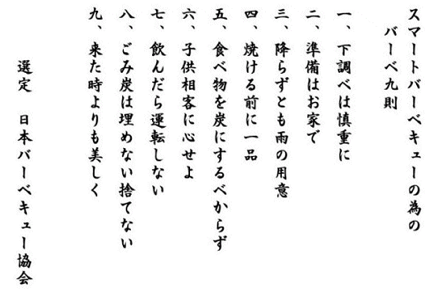 スマートバーベキューの為の
バーベ九則
一、下調べは慎重に
二、準備はお家で
三、降らずとも雨の用意
四、焼ける前に一品
五、食べ物を炭にするべからず
六、子供相客に心せよ
七、飲んだら運転しない
八、ごみ炭は埋めない捨てない
九、来た時よりも美しく
選定　日本バーベキュー協会